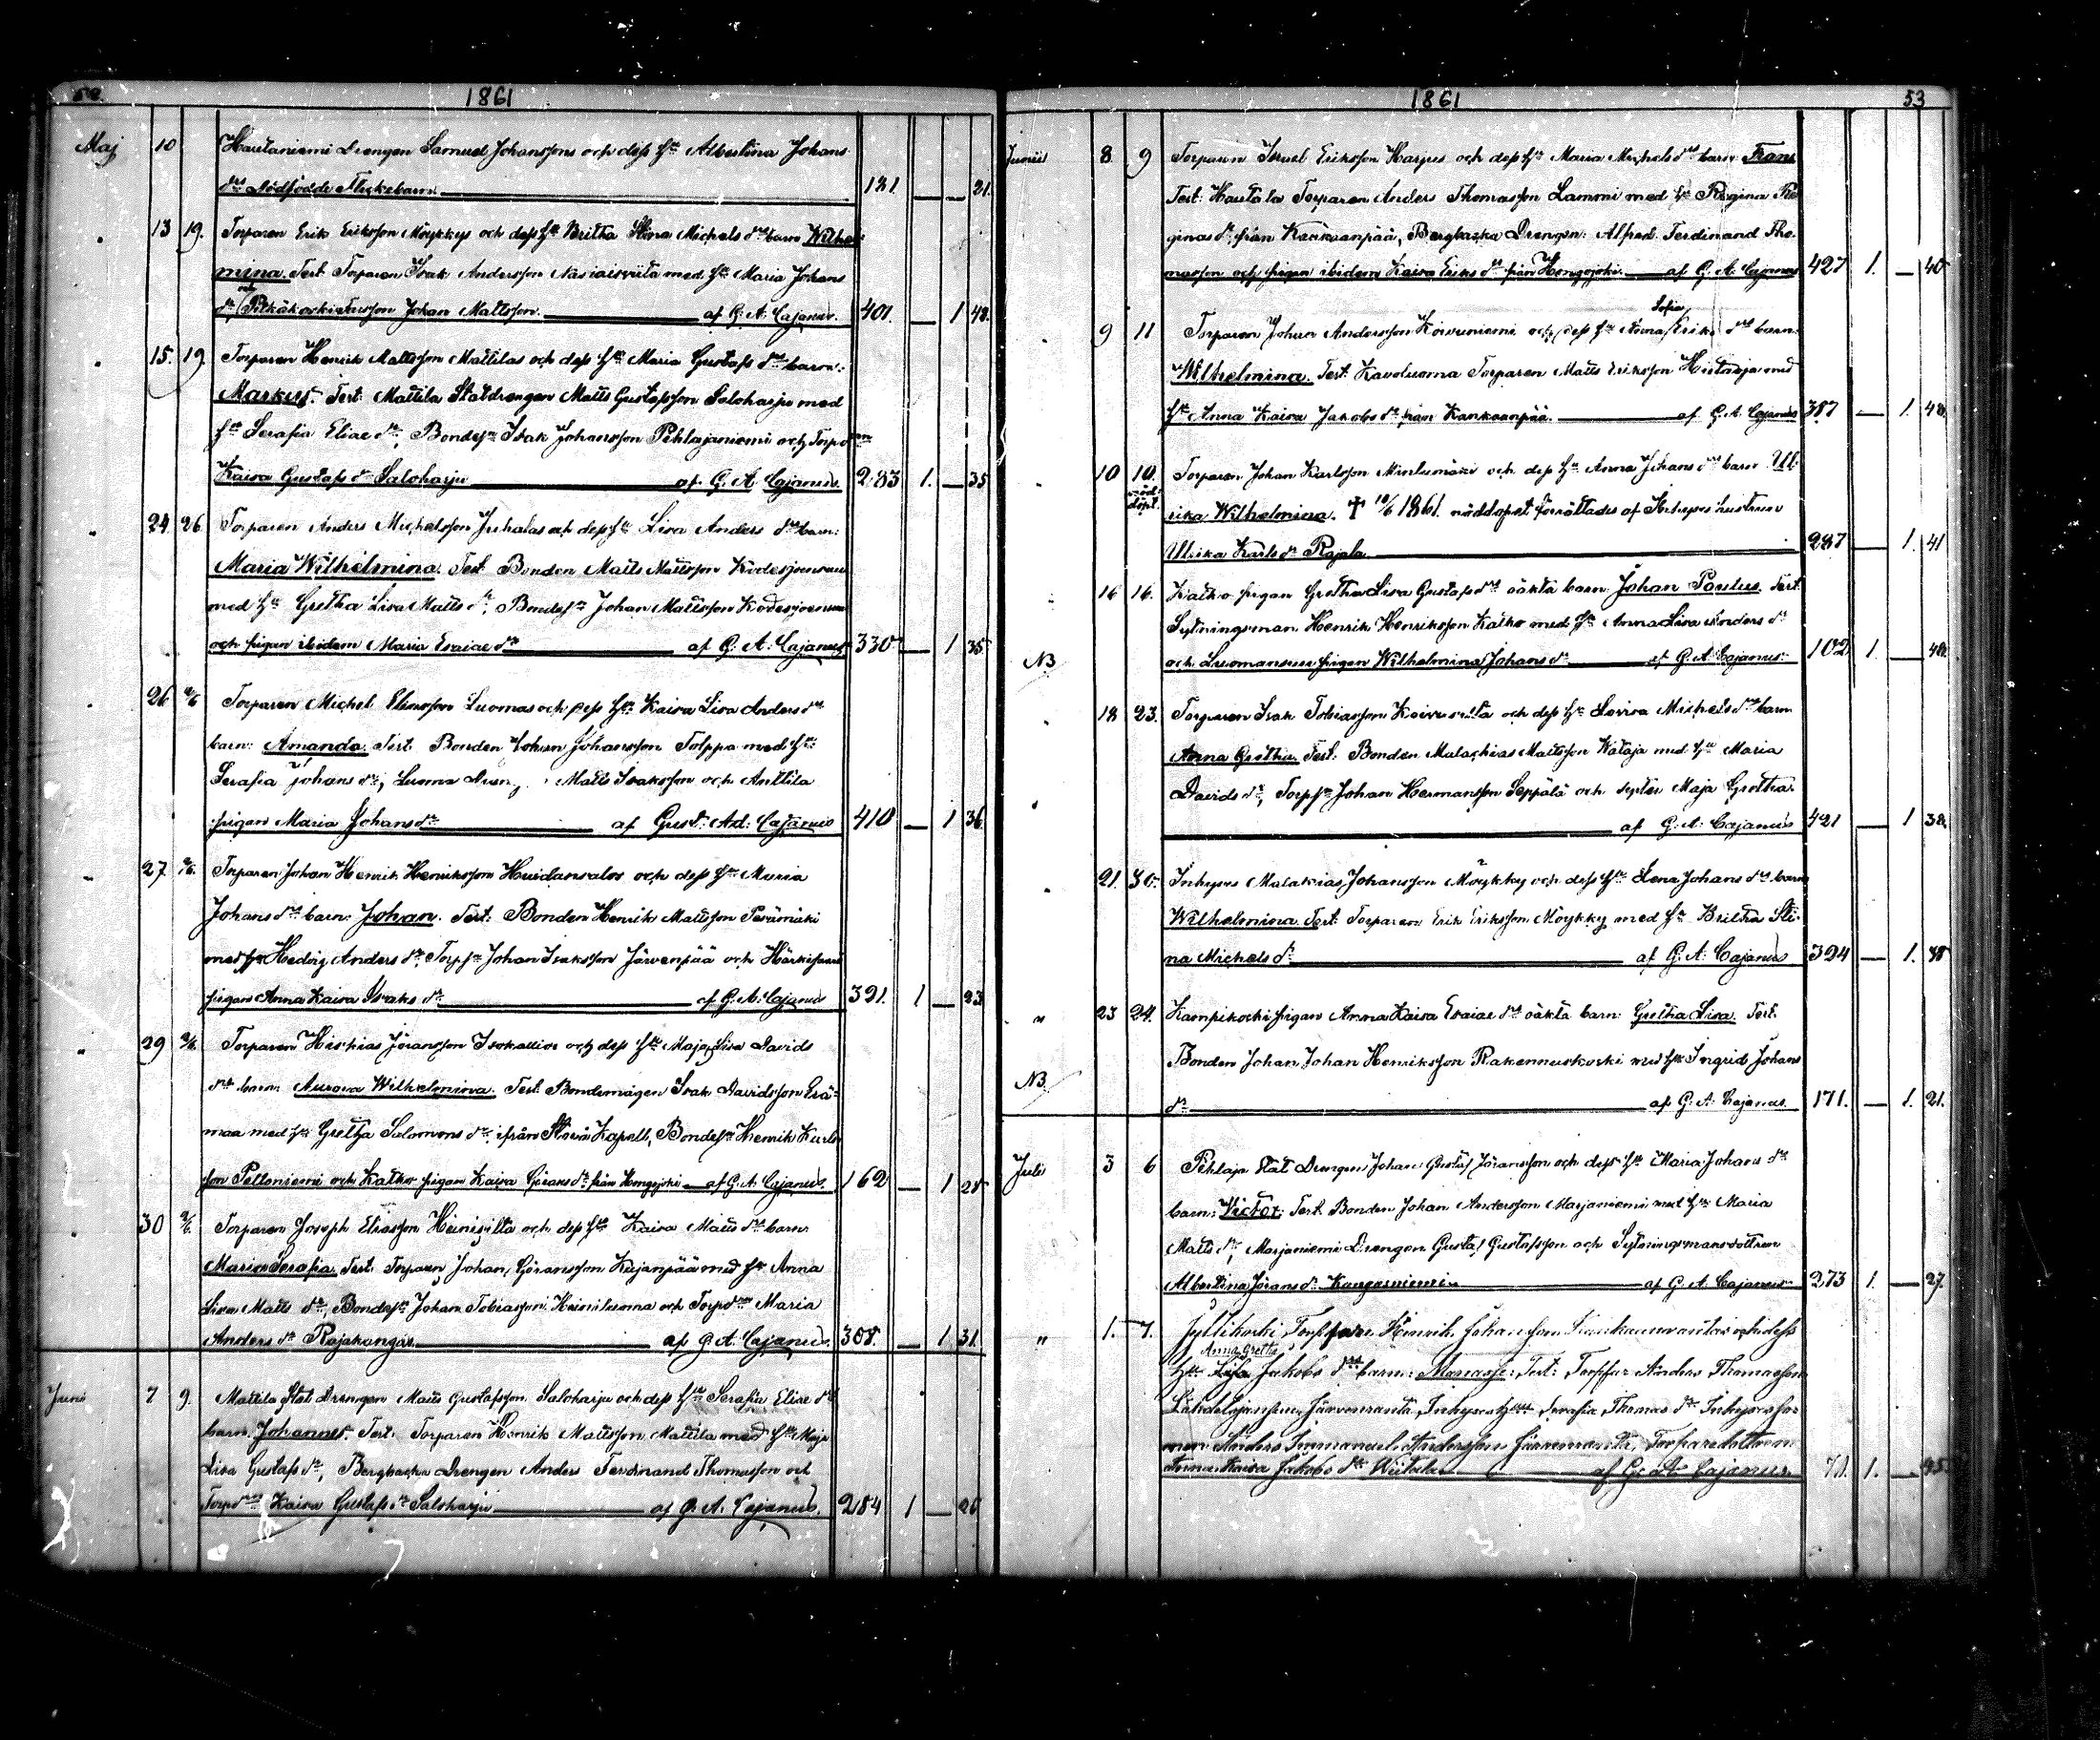 1861
Maj 10 Hautaniemi Drengen Samuel Johanssons och dess H:u Albertina Johans
d:rs Dödfödde Flickebarn 121. 21.
13 19. Torparen Erik Eriksson Möykkys och dess H:u Britha Stina Michels d:rs barn Wilhel
mina. Test. Torparen Isak Andersson med H:u Maria Johans
d:r och Pitkäkoski Johan Mattsson. af G. A. Cajanus. 401. 1 42.
15. 19. Torparen Henrik Mattsson Mattilas och dess H:u Maria Gustafs d:rs barn:
Markus. Test: Mattila Statdrengen Matts Gustafsson Saloharju med
H:u Serafia Eliae d:r, Bondes:n Isak Johansson Pihlajaniemi och Torp d:ren
Kaisa Gustafs d:r Saloharju af G. A. Cajanus. 283 1. 35
24. 26. Torparen Anders Michelsson Juhalas och dess H:u Lisa Anders d:rs barn:
Maria Wilhelmina. Test: Bonden Matts Mattsson
med H:u Gretha Lisa Matts d:r, Bondes:n Johan Mattsson
och pigan ibidem Maria Esaiae d:r af G. A. Cajanus 330 1 35
26. 2/6 Torparen Michel Eliasson Luomas och dess H:u Kaisa Lisa Anders d:rs
barn: Amanda. Test: Bonden Johan Johansson Tolppa med H:u
Serafia Johans d:r, Luoma Matts Isaksson och Anttila
pigan Maria Johans d:r af Gust: Ad: Cajanus 410 1 36.
27. 2/6. Torparen Johan Henrik Henriksson Huidansalos och dess H:u Maria
Johans d:rs barn: Johan. Test: Bonden Henrik Mattsson Perämäki
med H:u Hedvig Anders d:r, Torps:n Johan Isaksson Järvenpää och
pigan Anna Kaisa Isaks d:r af G. A. Cajanus 391. 1 23
29 2/6. Torparen Hiskias Jöransson Isokallios och dess H:u Maja Lisa Davids
d:rs barn: Aurora Wilhelmina. Test: Bondemågen Isak Davidsson Erä-
maa med H:u Gretha Salomons d:r, ifrån Kapell, Bondes:n Henrik Karls
son Peltoniemi och Katko pigan Kaisa Görans d:r från Hongojoki af G. A. Cajanus. 162 1 28
30 2/6. Torparen Joseph Eliasson Heinisilta och dess H:u Kaisa Matts d:rs barn
Maria Serafia. Test: Torparen Johan Göransson Kujanpää med H:u Anna
Lisa Matts d:r, Bondes:n Johan Tobiasson Heiniluoma och Torpd:ren Maria
Anders d:r Rajakangas af G. A. Cajanus. 308. 1 31.
Juni 7 9. Mattila Stat Drengen Matts Gustafsson Saloharju och dess H:u Serafia Eliae d:rs
barn: Johannes. Test: Torparen Henrik Mattsson Mattila med H:u Maja
Lisa Gustafs d:r, Bergbacka Drengen Anders Ferdinand Thomasson och
Torpd:ren Kaisa Gustafs d:r Saloharju af G. A. Cajanus. 284 1 26
1861 53
Junii 8 9 Torparen Israel Eriksson Harjus och dess H:u Maria Michels d:rs barn Frans
Test: Hautala Torparen Anders Thomasson Lammi med H:u Regina Re
ginas d:r från Kankaanpää, Bergbacka Drengen Alfred Ferdinand Tho-
masson och pigan ibidem Kaisa Eriks d:r från Hongojoki. af G. A. Cajanus 427 1. 40
Sofia
9 11 Torparen Johan Andersson Koivuniemi och dess H:u Anna Eriks d:rs barn:
Wilhelmina. Test: Kavoluoma Torparen Matts Eriksson Hietaoja med
H:u Anna Kaisa Jakobs d:r från Kankaanpää. af G. A. Cajanus 387 1. 40
10 10. nöd- döpt. Torparen Johan Karlsson och dess H:u Anna Johans d:rs barn Ul-
rika Wilhelmina. † 10/6 1861. nöddopet förrättades af Inhyses hustrun
Ulrika Karls d:r Rajala 287 1. 41
16 16. Katko pigan Gretha Lisa Gustafs d:rs oäkta barn: Johan Paulus. Test:
Sytningsman Henrik Henriksson Katko med H:u Anna Lisa Anders d:r
NB. och pigan Wilhelmina Johans d:r af G. A. Cajanus. 102 1. 40.
18 23. Torparen Isak Tobiasson Koivusilta och dess H:u Lovisa Michels d:rs barn
Anna Gretha. Test: Bonden Malachias Mattsson Kataja med H:u Maria
Davids d:r, Torps:n Johan Hermansson Seppälä och syster Maja Gretha.
af G. A. Cajanus 421 1 32.
21. 30. Inhyses Malakias Johansson Möykky och dess H:u Lena Johans d:rs barn
Wilhelmina. Test: Torparen Erik Eriksson Möykky med H:u Britha Sti-
na Michels d:r af G. A. Cajanus 394 1. 38
" 23 24. Kampikoski pigan Anna Kaisa Esaiae d:rs oäkta barn: Gretha Lisa. Test:
NB. Bonden Johan Johan Henriksson Rakennuskoski med H:u Ingrid Johans
d:r af G. A. Cajanus. 171. 1. 21.
Juli 3 6 Pihlaja Stat Drengen Johan Gustaf Jöransson och dess H:u Maria Johans d:rs
barn: Victor. Test: Bonden Johan Andersson Marjaniemi med H:u Maria
Matts d:r, Marjaniemi Drengen Gustaf Gustafsson och Sytningsmansdottren
Albertina Jörans d:r Kangasniemi af G. A. Cajanus 273 1. 27.
" 1. 7. Jyllikoski Torpparen Henrik Johansson och dess
Anna Gretha
H:u Lisa Jakobs d:rs barn: Manasse. Test: Torppar Anders Thomasson
Järvenranta, Inhyses H:u Serafia Thomas d:r
Anders Immanuel Andersson Järvenranta, Torparedottren
Anna Kaisa Jakobs d:r Wiitala af G. A. Cajanus. 71. 1. 45